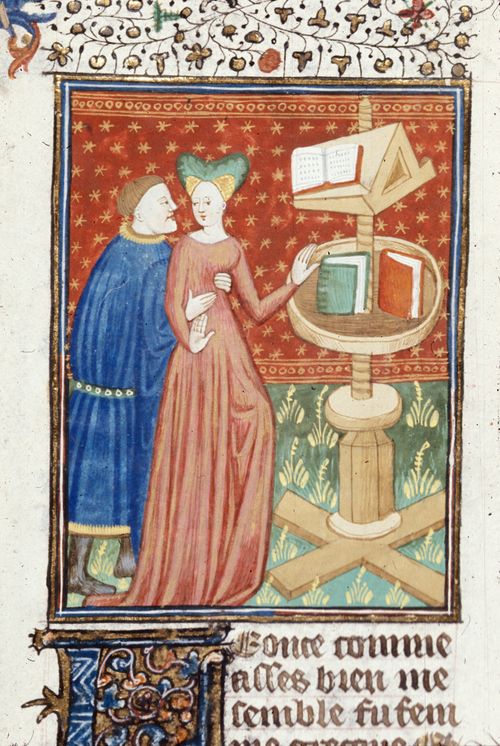 Eonce comme
asses bien me
semble fu fem